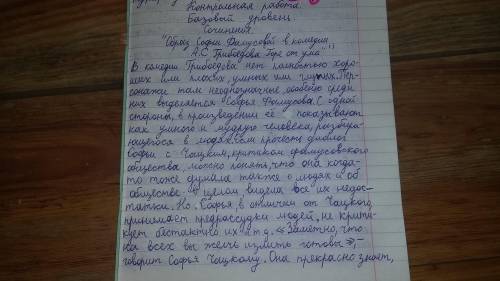 Контрольная работа
Базовый уровень
Сочинение
"Образ Софьи Фамусовой в комедии
А.С Грибоедова Горе от ума"
В комедии Грибоедова нет полностью хоро-
ших или плохих, умных или глупых. Пер-
сонажи там неоднозначные, особенно среди
них выделяется Софья Фамусова. С одной
стороны, в произведении её показывают
как умного и мудрую человека, разбира-
ющегося в людях. Если прочесть диалог
Софьи с Чацким, критиком фамусовского
общества, можно понять, что она когда-
то тоже думала также о людях и об
обществе в целом видела все их недос-
татки. Но Софья, в отличии от Чацкого
принимает предрассудки людей, не крити-
кует бестактно их и т.д. «Заметно, что
на всех вы желчь излить готовы», -
говорит Софья Чацкому. Она прекрасно знает,